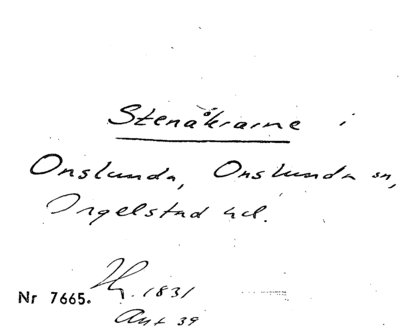 Stenåkrarne i
Onslunda, Onslunda sn,
Ingelstad hd.
Nr 7665.
1831
39